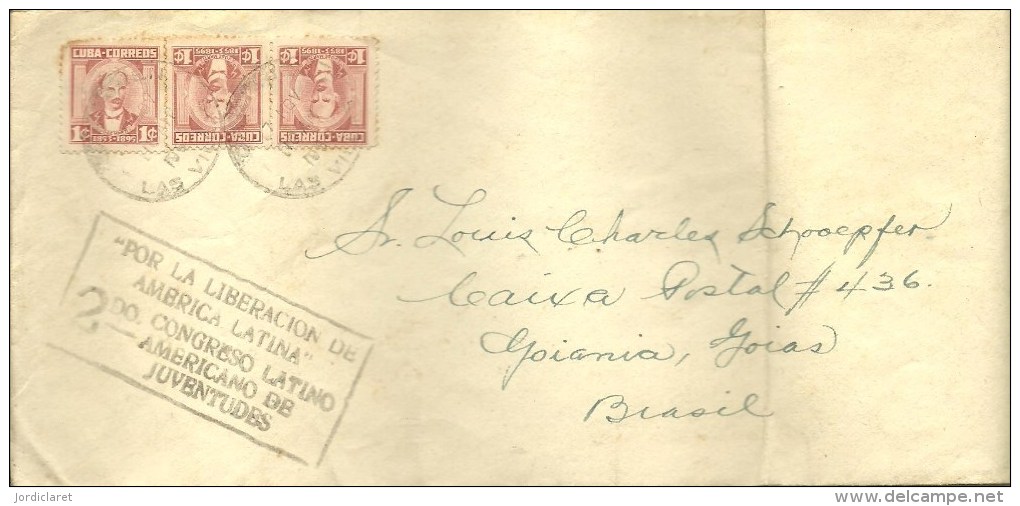 CUBA-CORREOS
1¢ 1¢
1853-1895
1¢ 1¢
1853-1895
CUBA-CORREOS
1¢ 1¢
1853-1895
CUBA-CORREOS
LAS VI
LAS VI
Sr. Louis Charles Schooepfer
Caixa Postal # 436.
Goiania, Goias
Brasil
"POR LA LIBERACION DE
AMERICA LATINA"
2DO. CONGRESO LATINO
AMERICANO DE
JUVENTUDES
jordiclaret
www.delcampe.net